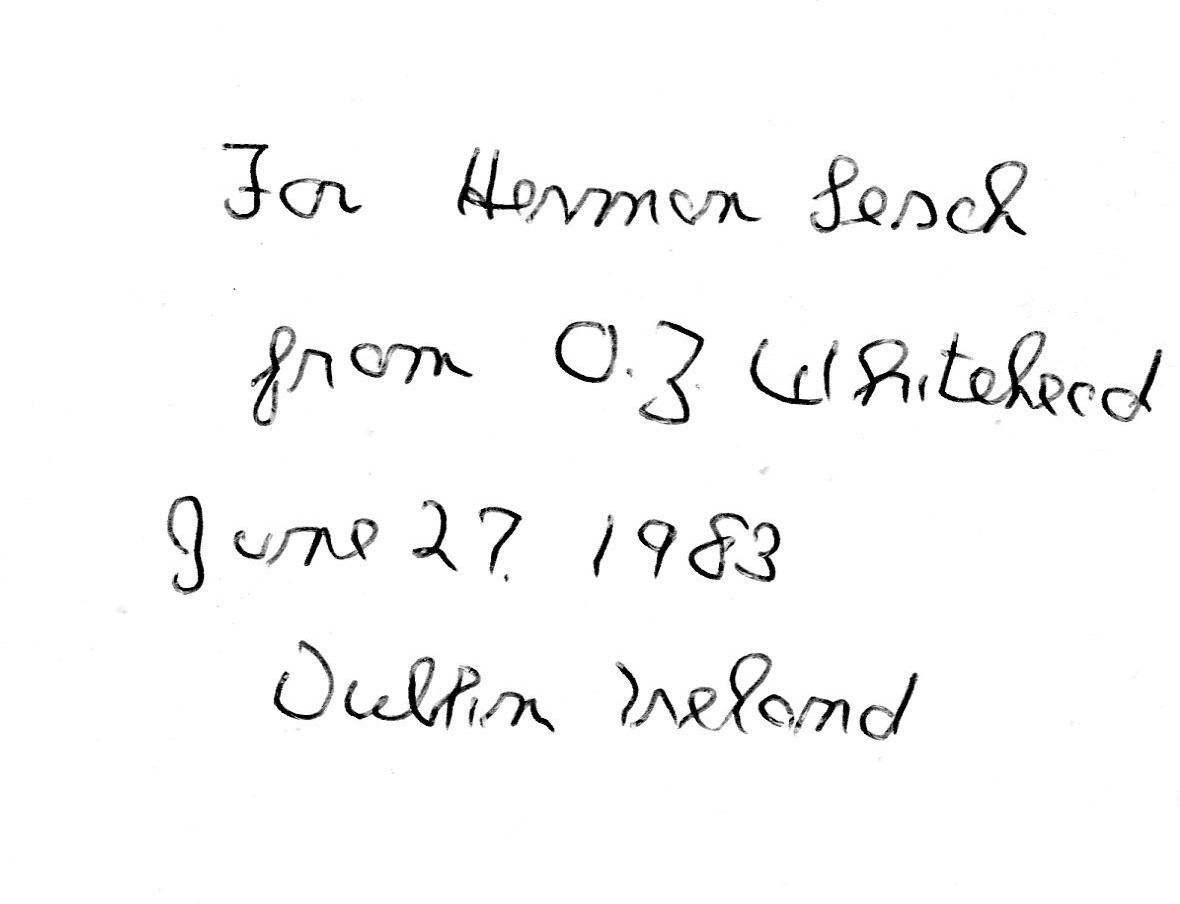 For Herman Lesch
from O.Z. Whitehead
June 27. 1983
Dublin Ireland